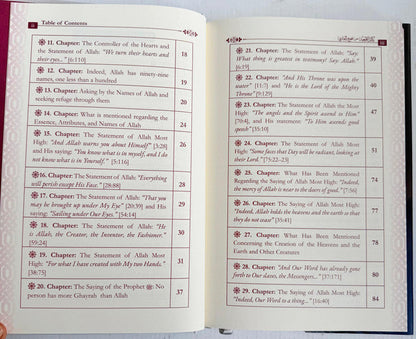 Table of Contents
11. Chapter: The Controller of the Hearts and
the Statement of Allah: "We turn their hearts and
their eyes.." [6:110]
18
12. Chapter: Indeed, Allah has ninety-nine
names, one less than a hundred
19
13. Chapter: Asking by the Names of Allah and
seeking refuge through them.
20
14. Chapter: What is mentioned regarding the
Essence, Attributes, and Names of Allah
24
15. Chapter: The Statement of Allah Most
High: "And Allah warns you about Himself" [3:28]
and His saying: "You know what is in myself, and I
do not know what is in Yourself." [5:116]
26
16. Chapter: The Statement of Allah: "Everything
will perish except His Face." [28:88]
28
17. Chapter: The Statement of Allah: "That you
may be brought up under My Eye" [20:39] and His
saying: "Sailing under Our Eyes." [54:14]
29
18. Chapter: The Statement of Allah: "He
is Allah, the Creator, the Inventor, the Fashioner."
[59:24]
30
19. Chapter: The Statement of Allah Most
High: "For what I have created with My two Hands."
[38:75]
31
20. Chapter: The Saying of the Prophet ﷺ: No
person has more Ghayrah than Allah
37
21. Chapter: The Statement of Allah: "Say:
What thing is greatest in testimony? Say: Allah."
[6:19]
39
22. Chapter: "And His Throne was upon the
water" [11:7] and "He is the Lord of the Mighty
Throne" [9:129]
40
23. Chapter: The Statement of Allah the Most
High: "The angels and the Spirit ascend to Him"
[70:4], and His statement: "To Him ascends good
speech" [35:10]
47
24. Chapter: The Statement of Allah Most
High: "Some faces that Day will be radiant, looking at
their Lord" [75:22–23]
51
25. Chapter: What Has Been Mentioned
Regarding the Saying of Allah Most High: "Indeed,
the mercy of Allah is near to the doers of good." [7:56]
74
26. Chapter: The Saying of Allah Most High:
"Indeed, Allah holds the heavens and the earth so that
they do not cease" [35:41]
77
27. Chapter: What Has Been Mentioned
Concerning the Creation of the Heavens and the
Earth and Other Creatures
78
28. Chapter: "And Our Word has already gone
forth to Our slaves, the Messengers..." [37:171]
80
29. Chapter: The Saying of Allah Most High:
"Indeed, Our Word to a thing..." [16:40]
84